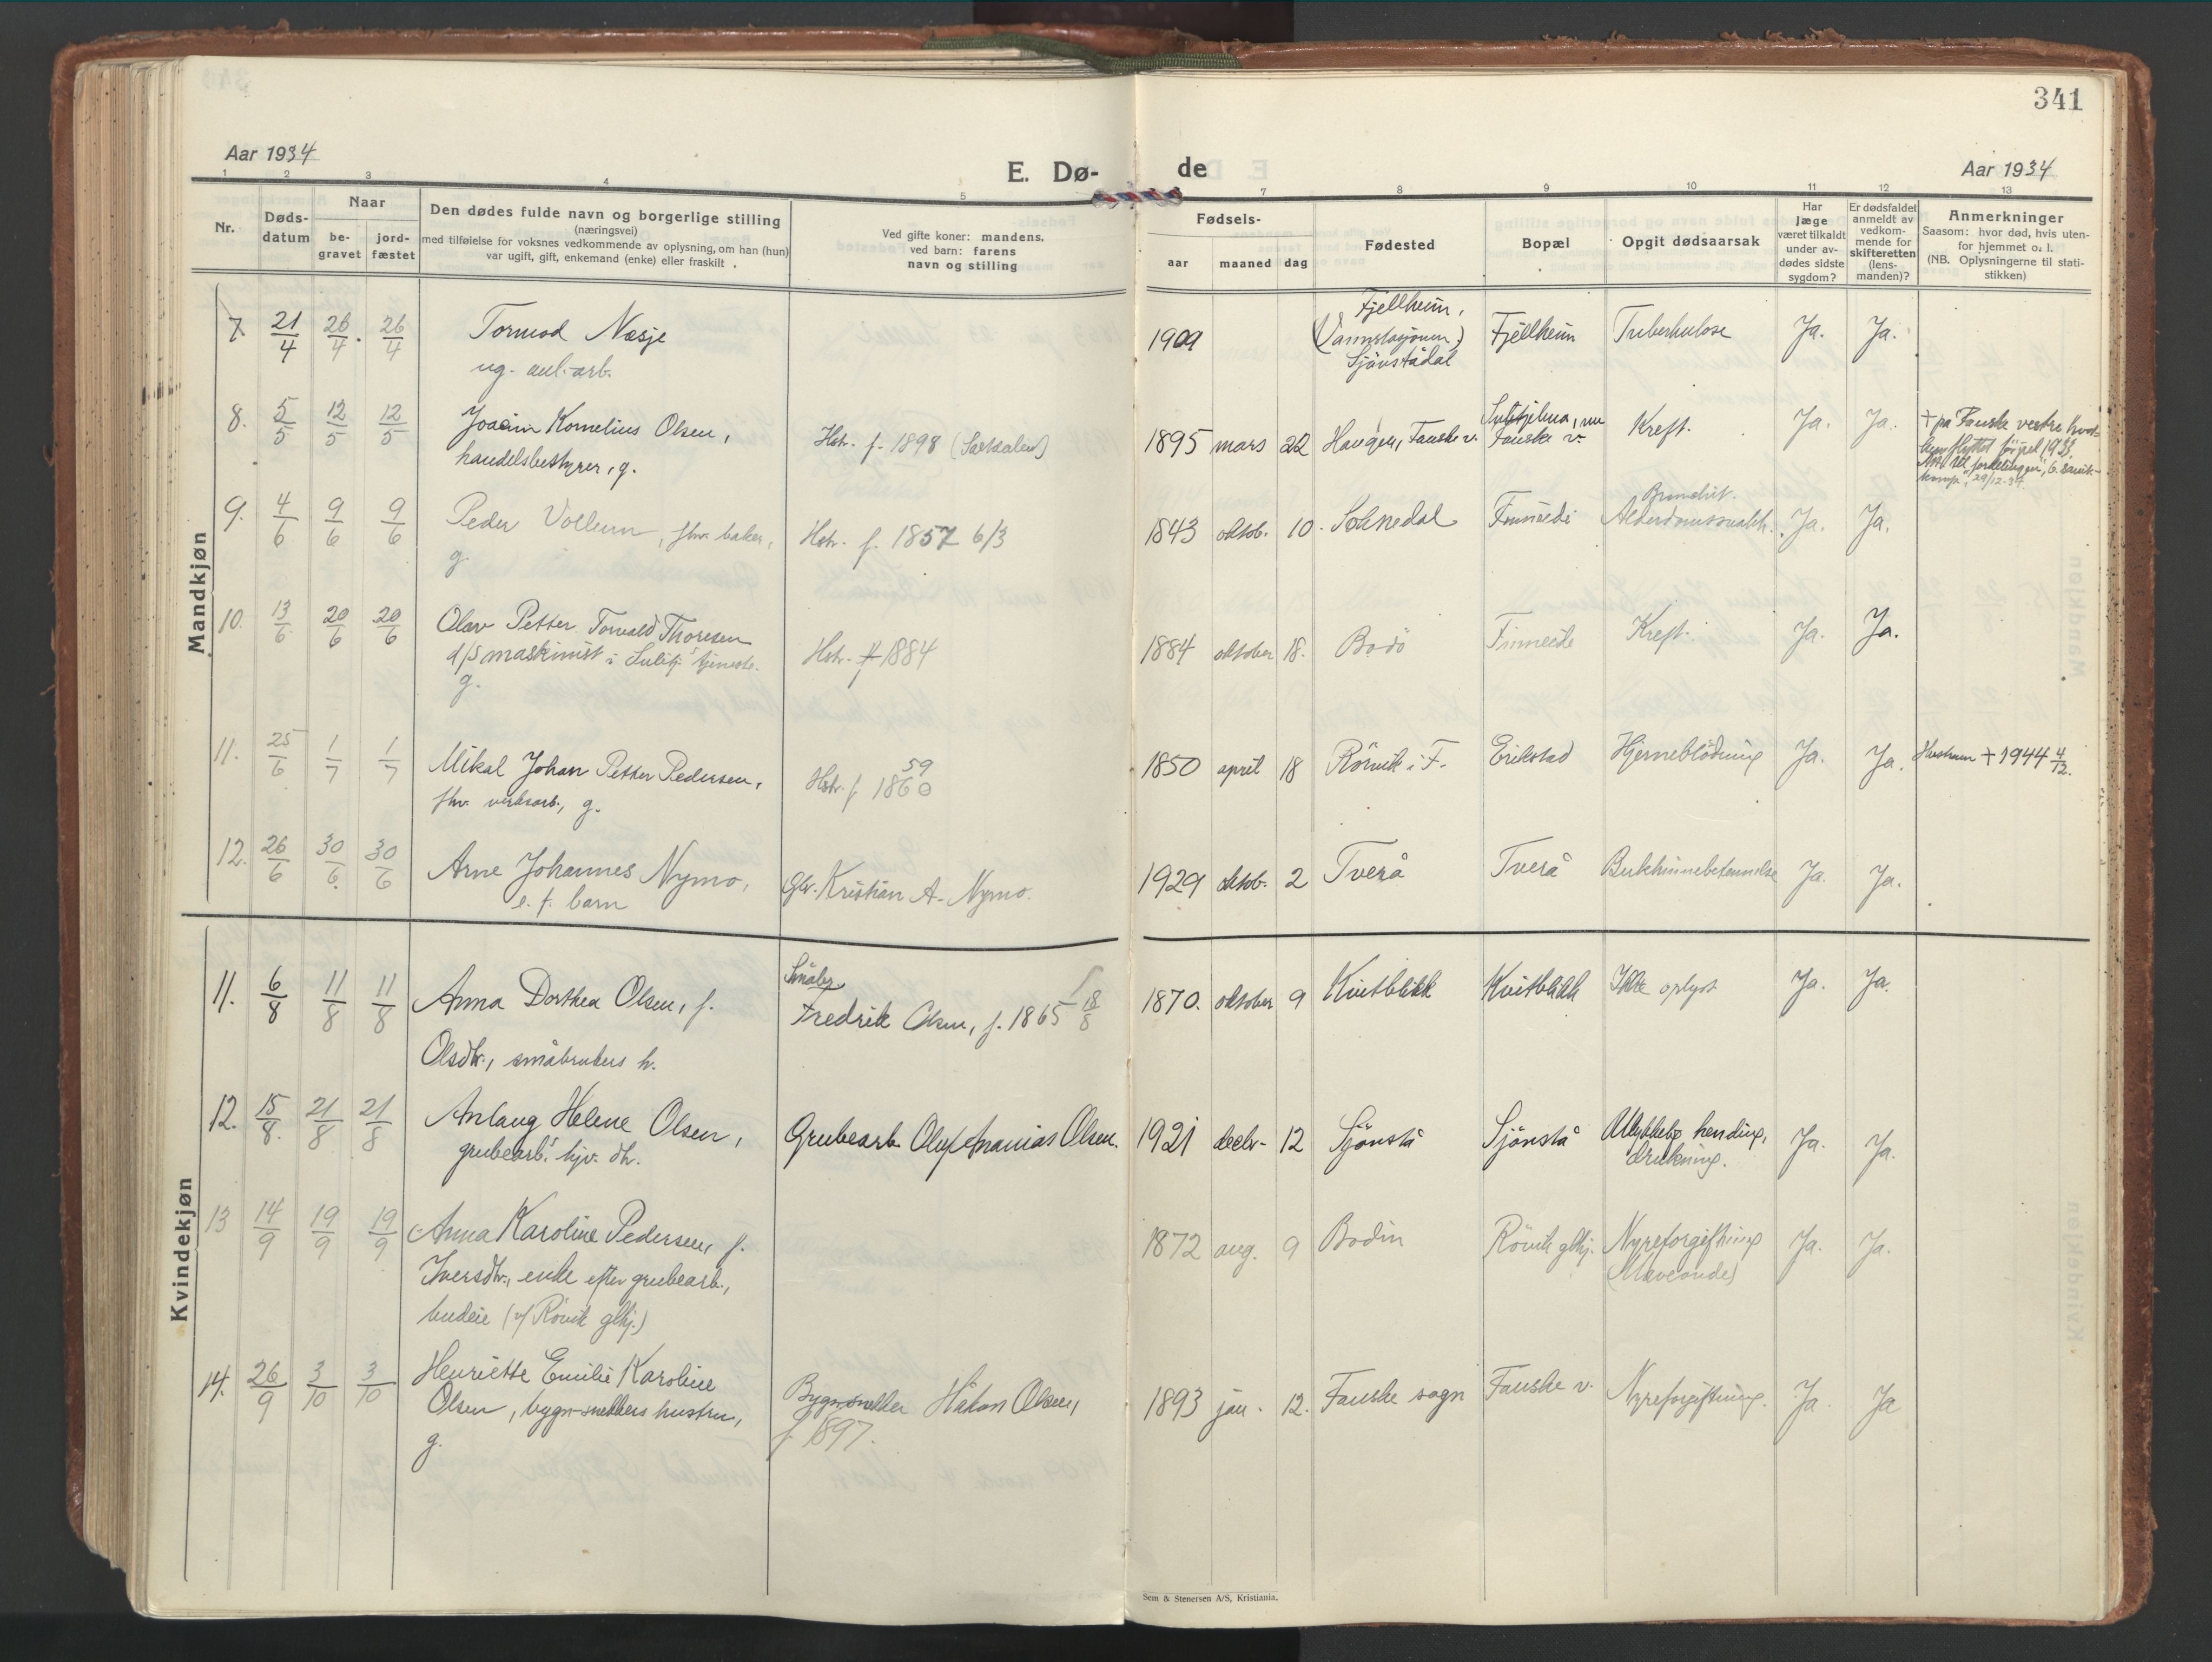 341
Aar 1934
E. Dø-
de
Aar 1934
1 2 3 4 5 7 8 9 10 11 12 13
Nr.
Døds-
datum
Naar
be-
gravet
jord-
fæstet
Den dødes fulde navn og borgerlige stilling
(næringsvei)
med tilføielse for voksnes vedkommende av oplysning, om han (hun)
var ugift, gift, enkemand (enke) eller fraskilt
Ved gifte koner: mandens,
ved barn: farens
navn og stilling
Fødsels-
aar maaned dag
Fødested
Bopæl
Opgit dødsaarsak
Har
læge
været tilkaldt
under av-
dødes sidste
sygdom?
Er dødsfaldet
anmeldt av
vedkom-
mende for
skifteretten
(lens-
manden)?
Anmerkninger
Saasom: hvor død, hvis uten-
for hjemmet o. l.
(NB. Oplysningerne til stati-
stikken)
Mandkjøn
7. 21/4 26/4. 26/4 Tormod Næsje
ug. anl.-arb.
1909
Fjellheim,
Sjönstådal
Fjellheim Tuberkulose Ja. Ja.
8. 5/5 12/5 12/5 Joacim Kornelius Olsen,
handelsbestyrer, g.
Hstr. f. 1898
1895 mars 22 Haugen, Fauske v.
Sulitjelma, nu
Fauske v. Kreft. Ja. Ja.
+ på Fauske vestre
9. 4/6 9/6 9/6 Peder Vollum, fhv. baker,
g.
Hstr. f. 1857 6/3
1843 oktob. 10. Soknedal Finneide
Alderdomssvakh. Ja. Ja.
10. 13/6 20/6 20/6 Olav Petter Torvald Thoresen
d/s maskinist i Sulitj.s tjeneste.
g.
Hstr. f 1884
1884 oktober 18. Bodö Finneide Kreft. Ja. Ja.
11. 25/6 1/7 1/7 Mikal Johan Petter Pedersen,
fhv. verksarb., g.
59
Hstr. f 1860
1850 april 18 Rörvik i F. Erikstad Hjerneblödning Ja. Ja.
Hustruen + 1944 4/12.
12. 26/6 30/6 30/6 Arne Johannes Nymo,
e. f. barn
Gbr. Kristian A. Nymo.
1929 oktob. 2 Tverå Tverå Bukhinnebetennelse Ja. Ja.
Kvindekjøn
11. 6/8 11/8 11/8 Anna Dorthea Olsen, f.
Olsdtr., småbrukers h.
Småbr.
Fredrik Olsen, f. 1865 18/8
1870. oktober 9 Kvitblikk Kvitblikk Ikke oplyst Ja. Ja.
12. 15/8. 21/8 21/8 Anlaug Helene Olsen,
grubearb.s hjv. dtr.
Grubearb. Oluf Ananias Olsen.
1921 decbr. 12 Sjönstå Sjönstå Ulykkelig hending,
drukning. Ja. Ja.
13 14/9 19/9 19/9 Anna Karoline Pedersen, f.
Iversdtr., enke efter grubearb.,
budeie (v/ Rövik glhj.)
1872 aug. 9 Bodin Rövik glhj. Nyreforgiftning
(Maveonde) Ja. Ja.
14. 26/9 3/10 3/10 Henriette Emilie Karoline
Olsen, bygn.-snekkers hustru,
g.
Bygn.snekker Håkon Olsen,
f. 1897.
1893 jan. 12. Fauske sogn Fauske v. Nyreforgiftning. Ja. Ja
Sem & Stenersen A/S, Kristiania.